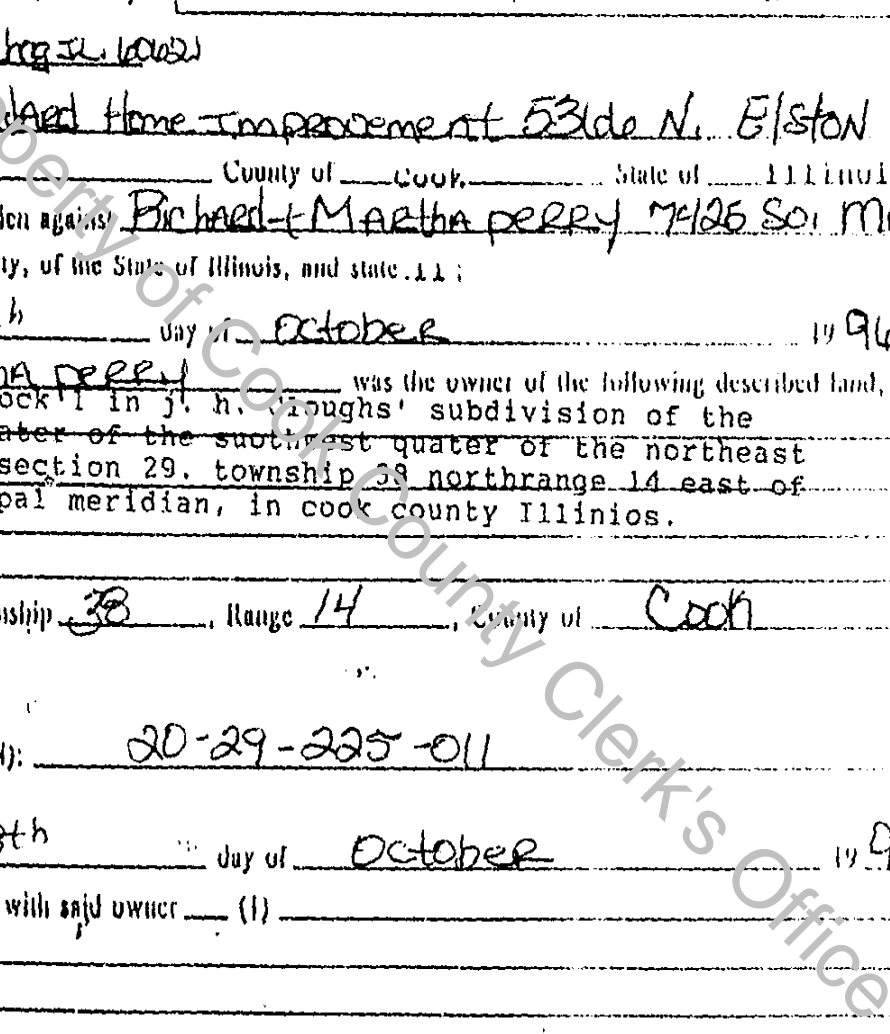 IL. 60621
Home Improvement 5316 N. Elston
County of Cook State of Illinoi
en against Richard + Martha Perry 7426 So. M
ty, of the State of Illinois, and state.ii ;
h day of October 19 96
HA Perry was the owner of the following described land,
ock 1 in j. h. subdivision of the
ater of the quater of the northeast
section 29. township 38 northrange 14 east of
pal meridian, in cook county Illinios.
nship 38, Range 14, County of Cook
): 20-29-225-011
8th day of October 19 9
with said owner (1)
Property of Cook County Clerk's Office